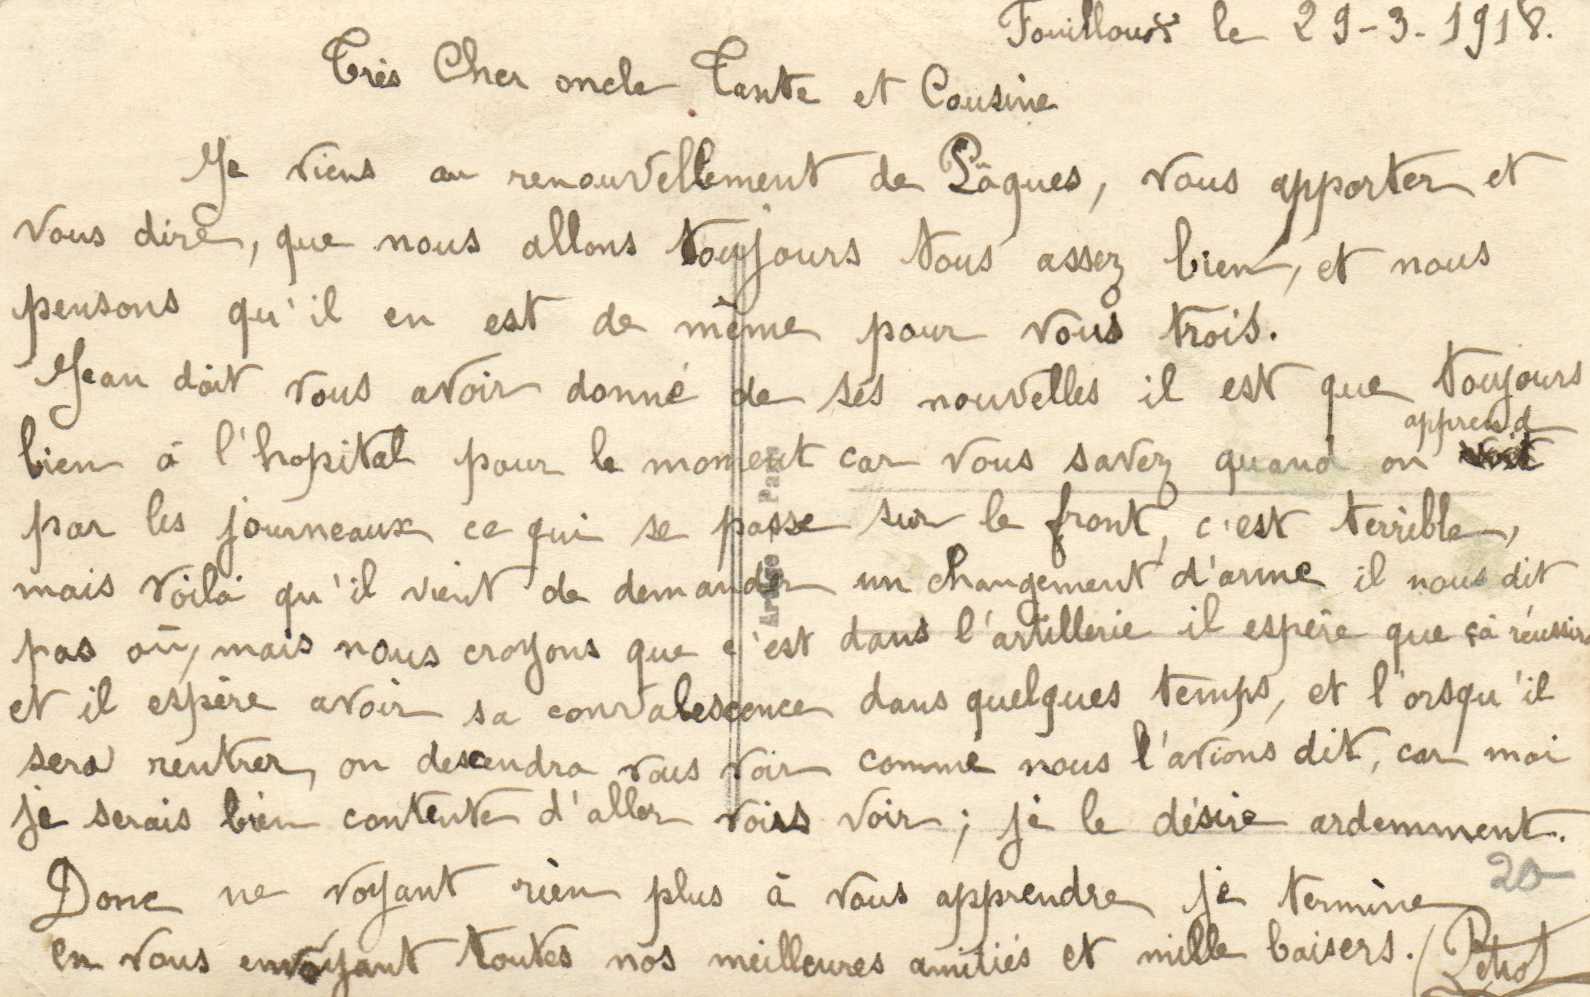 Fouilloux le 29-3-1918.
Très Cher oncle Tante et Cousine
Je viens au renouvellement de Pâques, vous apporter et
vous dire, que nous allons toujours tous assez bien, et nous
pensons qu'il en est de même pour vous trois.
Jean doit vous avoir donné de ses nouvelles il est que toujours
bien à l'hopital pour le moment car vous savez quand on apprend
par les journeaux ce qui se passe sur le front, c'est terrible,
mais voilà qu'il vient de demander un changement d'arme il nous dit
pas où, mais nous croyons que c'est dans l'artillerie il espère que çà réussira
et il espère avoir sa convalescence dans quelques temps, et l'orsqu'il
sera rentrer, on descendra vous voir comme nous l'avions dit, car moi
je serais bien contente d'aller vous voir; je le désire ardemment.
Donc ne voyant rien plus à vous apprendre je termine
en vous envoyant toutes nos meilleures amitiés et mille baisers.
20